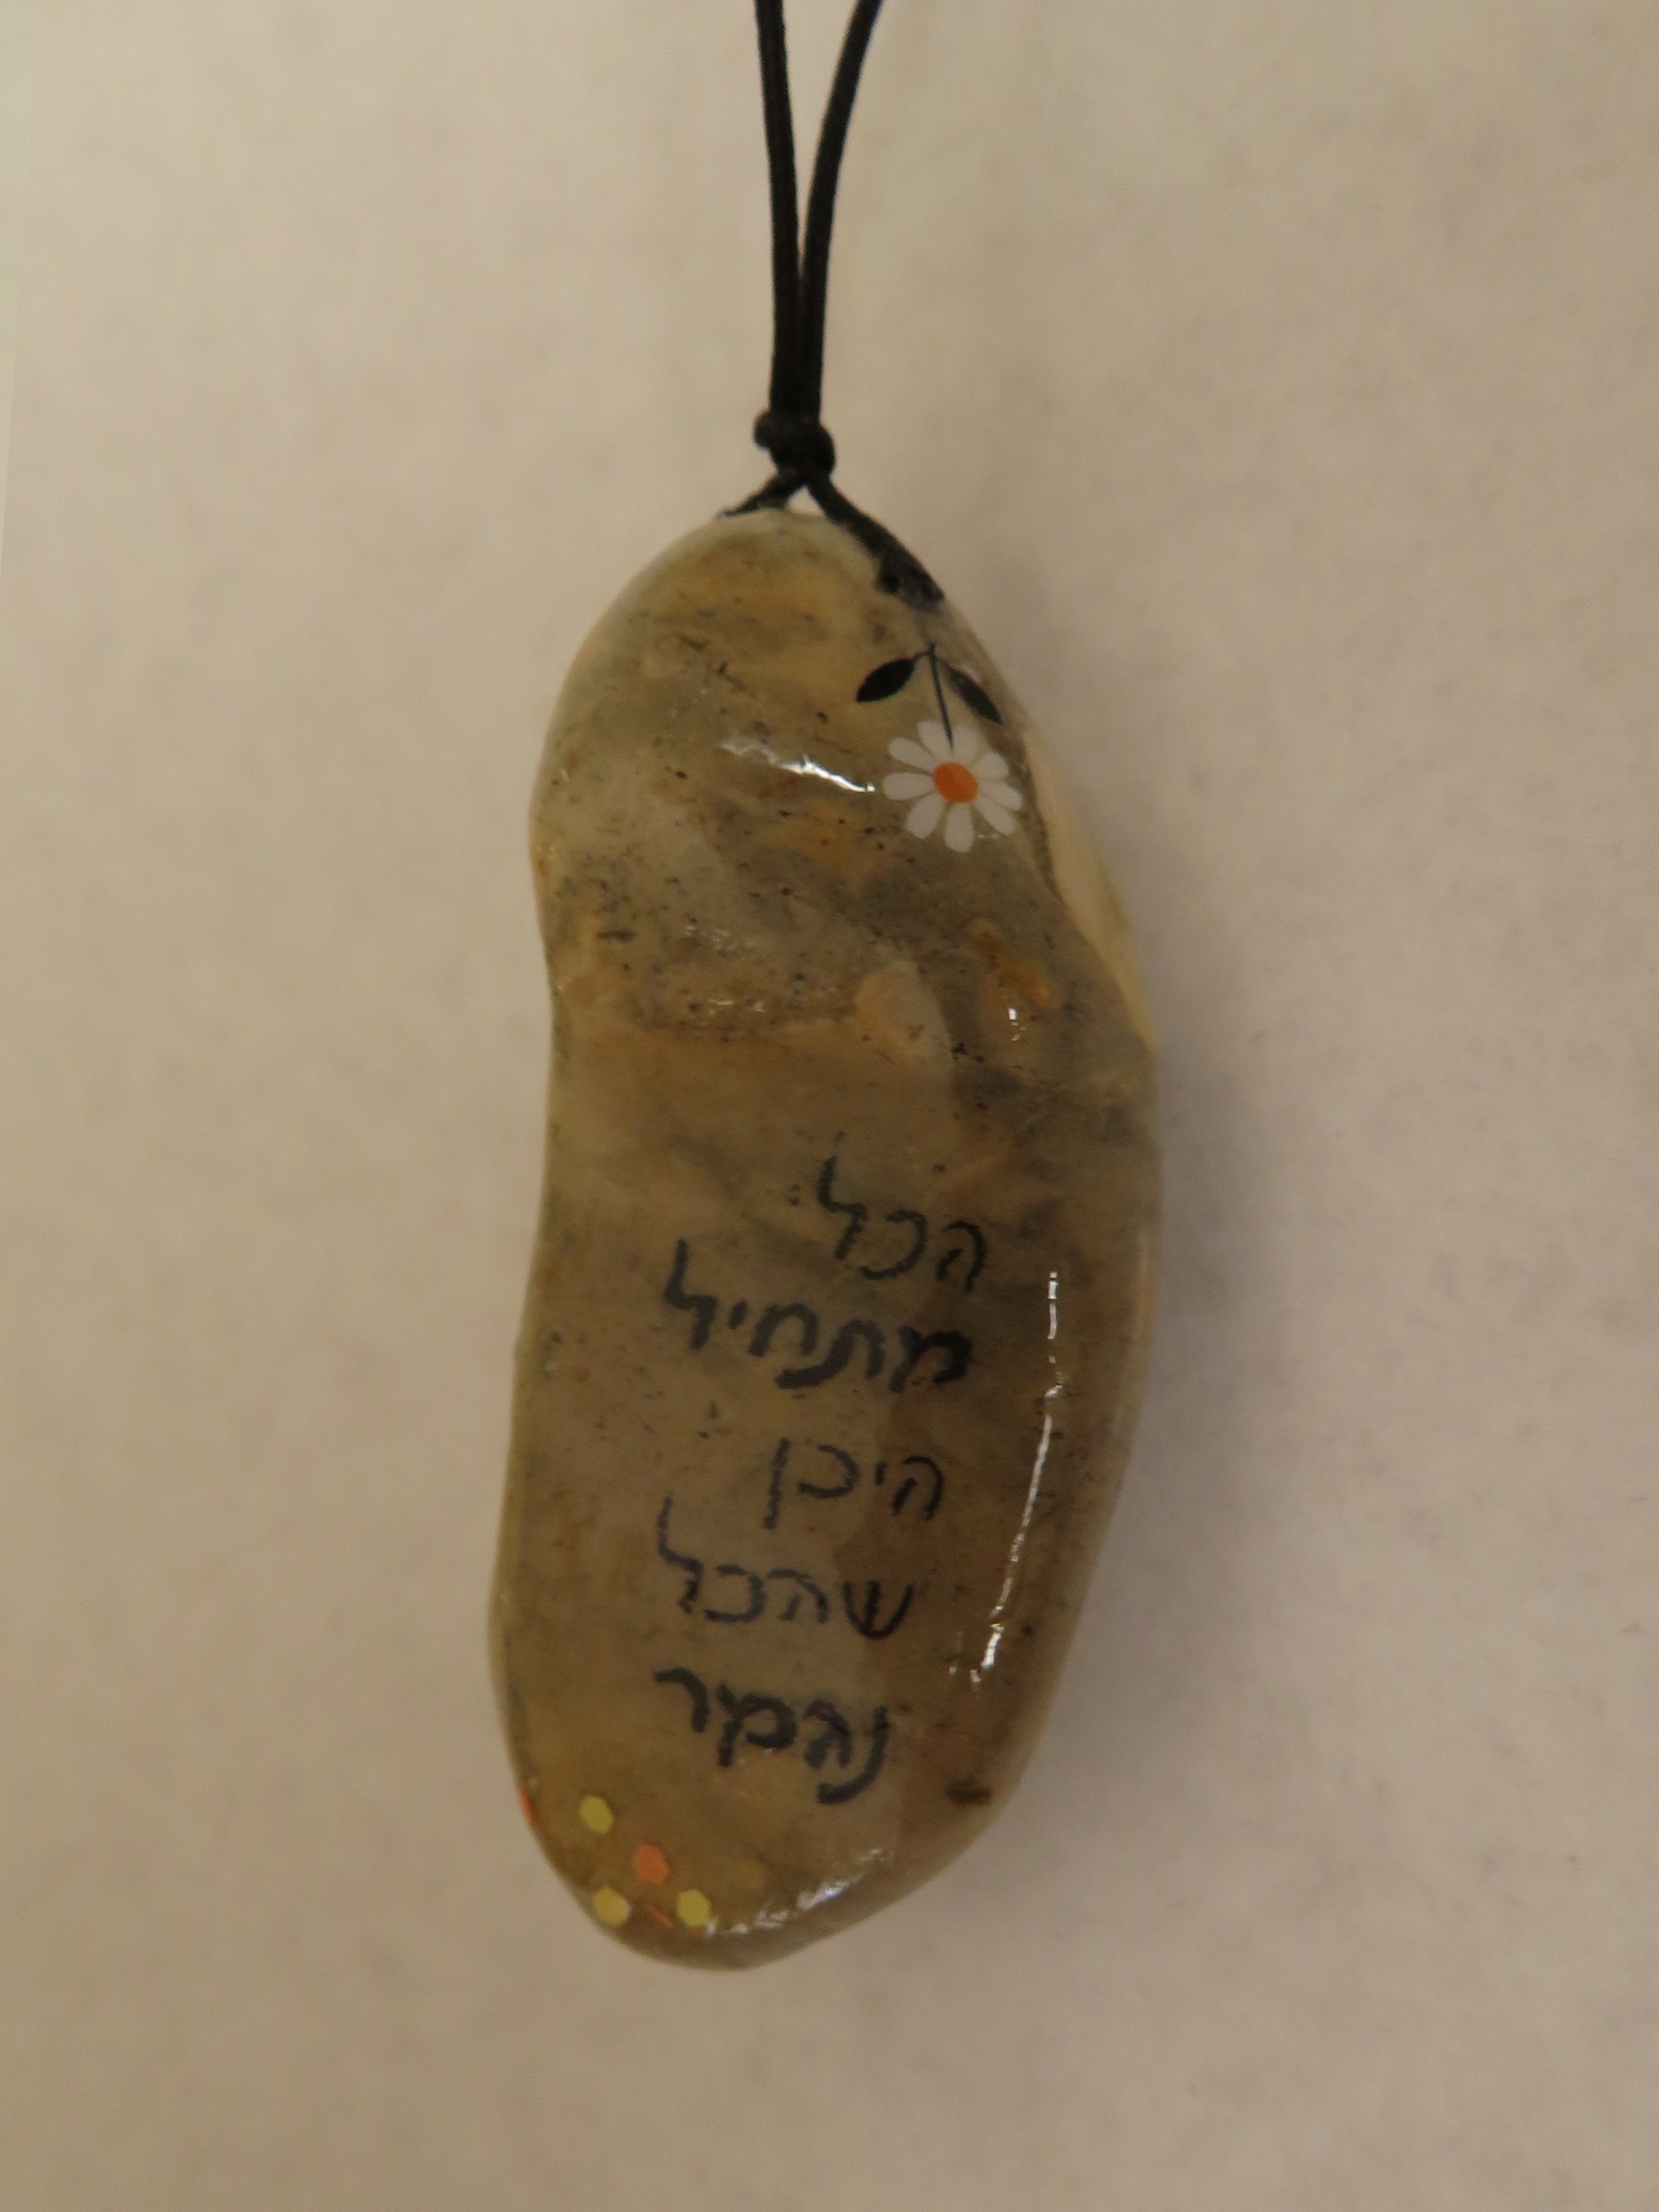 הכל
מתחיל
היכן
שהכל
נגמר